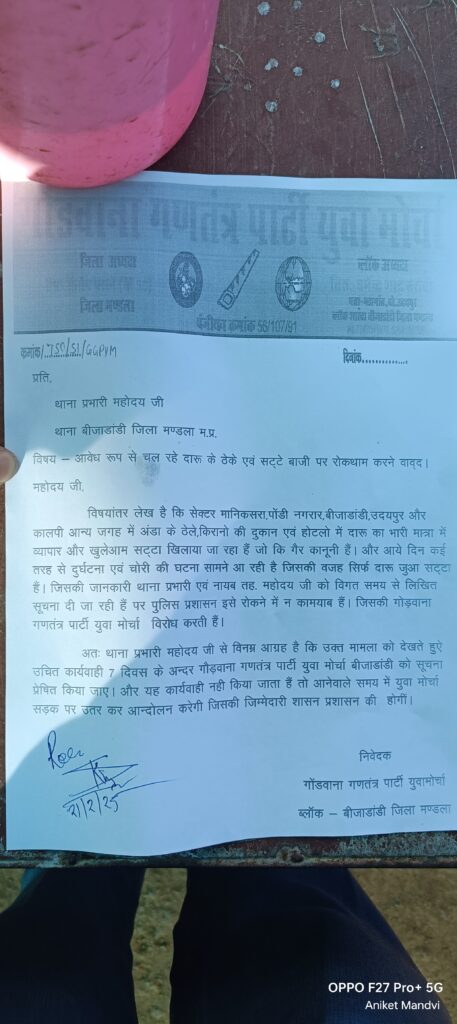 गोंडवाना गणतंत्र पार्टी युवा मोर्चा
जिला अध्यक्ष
ब्लॉक अध्यक्ष
जिला मण्डला
पंजीयन क्रमांक 56/107/91
क्रमांक/.750/51/GGPVM
दिनांक.............
प्रति,
थाना प्रभारी महोदय जी
थाना बीजाडांडी जिला मण्डला म.प्र.
विषय – आवेध रूप से चल रहे दारू के ठेके एवं सट्टे बाजी पर रोकथाम करने वाव्द।
महोदय जी,
विषयांतर लेख है कि सेक्टर मानिकसरा,पोंडी नगरार,बीजाडांडी,उदयपुर और
कालपी आन्य जगह में अंडा के ठेले,किरानो की दुकान एवं होटलो में दारू का भारी मात्रा में
व्यापार और खुलेआम सट्टा खिलाया जा रहा हैं जो कि गैर कानूनी हैं। और आये दिन कई
तरह से दुर्घटना एवं चोरी की घटना सामने आ रही है जिसकी वजह सिर्फ दारू जुआ सट्टा
हैं। जिसकी जानकारी थाना प्रभारी एवं नायब तह. महोदय को विगत समय से लिखित
सूचना दी जा रही हैं पर पुलिस प्रशासन इसे रोकने में न कामयाब हैं। जिसकी गोड़वाना
गणतंत्र पार्टी युवा मोर्चा विरोध करती हैं।
अतः थाना प्रभारी महोदय जी से विनम्र आग्रह है कि उक्त मामला को देखते हुए
उचित कार्यवाही 7 दिवस के अन्दर गौड़वाना गणतंत्र पार्टी युवा मोर्चा बीजाडांडी को सूचना
प्रेषित किया जाए। और यह कार्यवाही नही किया जाता हैं तो आनेवाले समय में युवा मोर्चा
सड़क पर उतर कर आन्दोलन करेगी जिसकी जिम्मेदारी शासन प्रशासन की होगीं।
21/2/25
निवेदक
गोंडवाना गणतंत्र पार्टी युवामोर्चा
ब्लॉक – बीजाडांडी जिला मण्डला
OPPO F27 Pro+ 5G
Aniket Mandvi